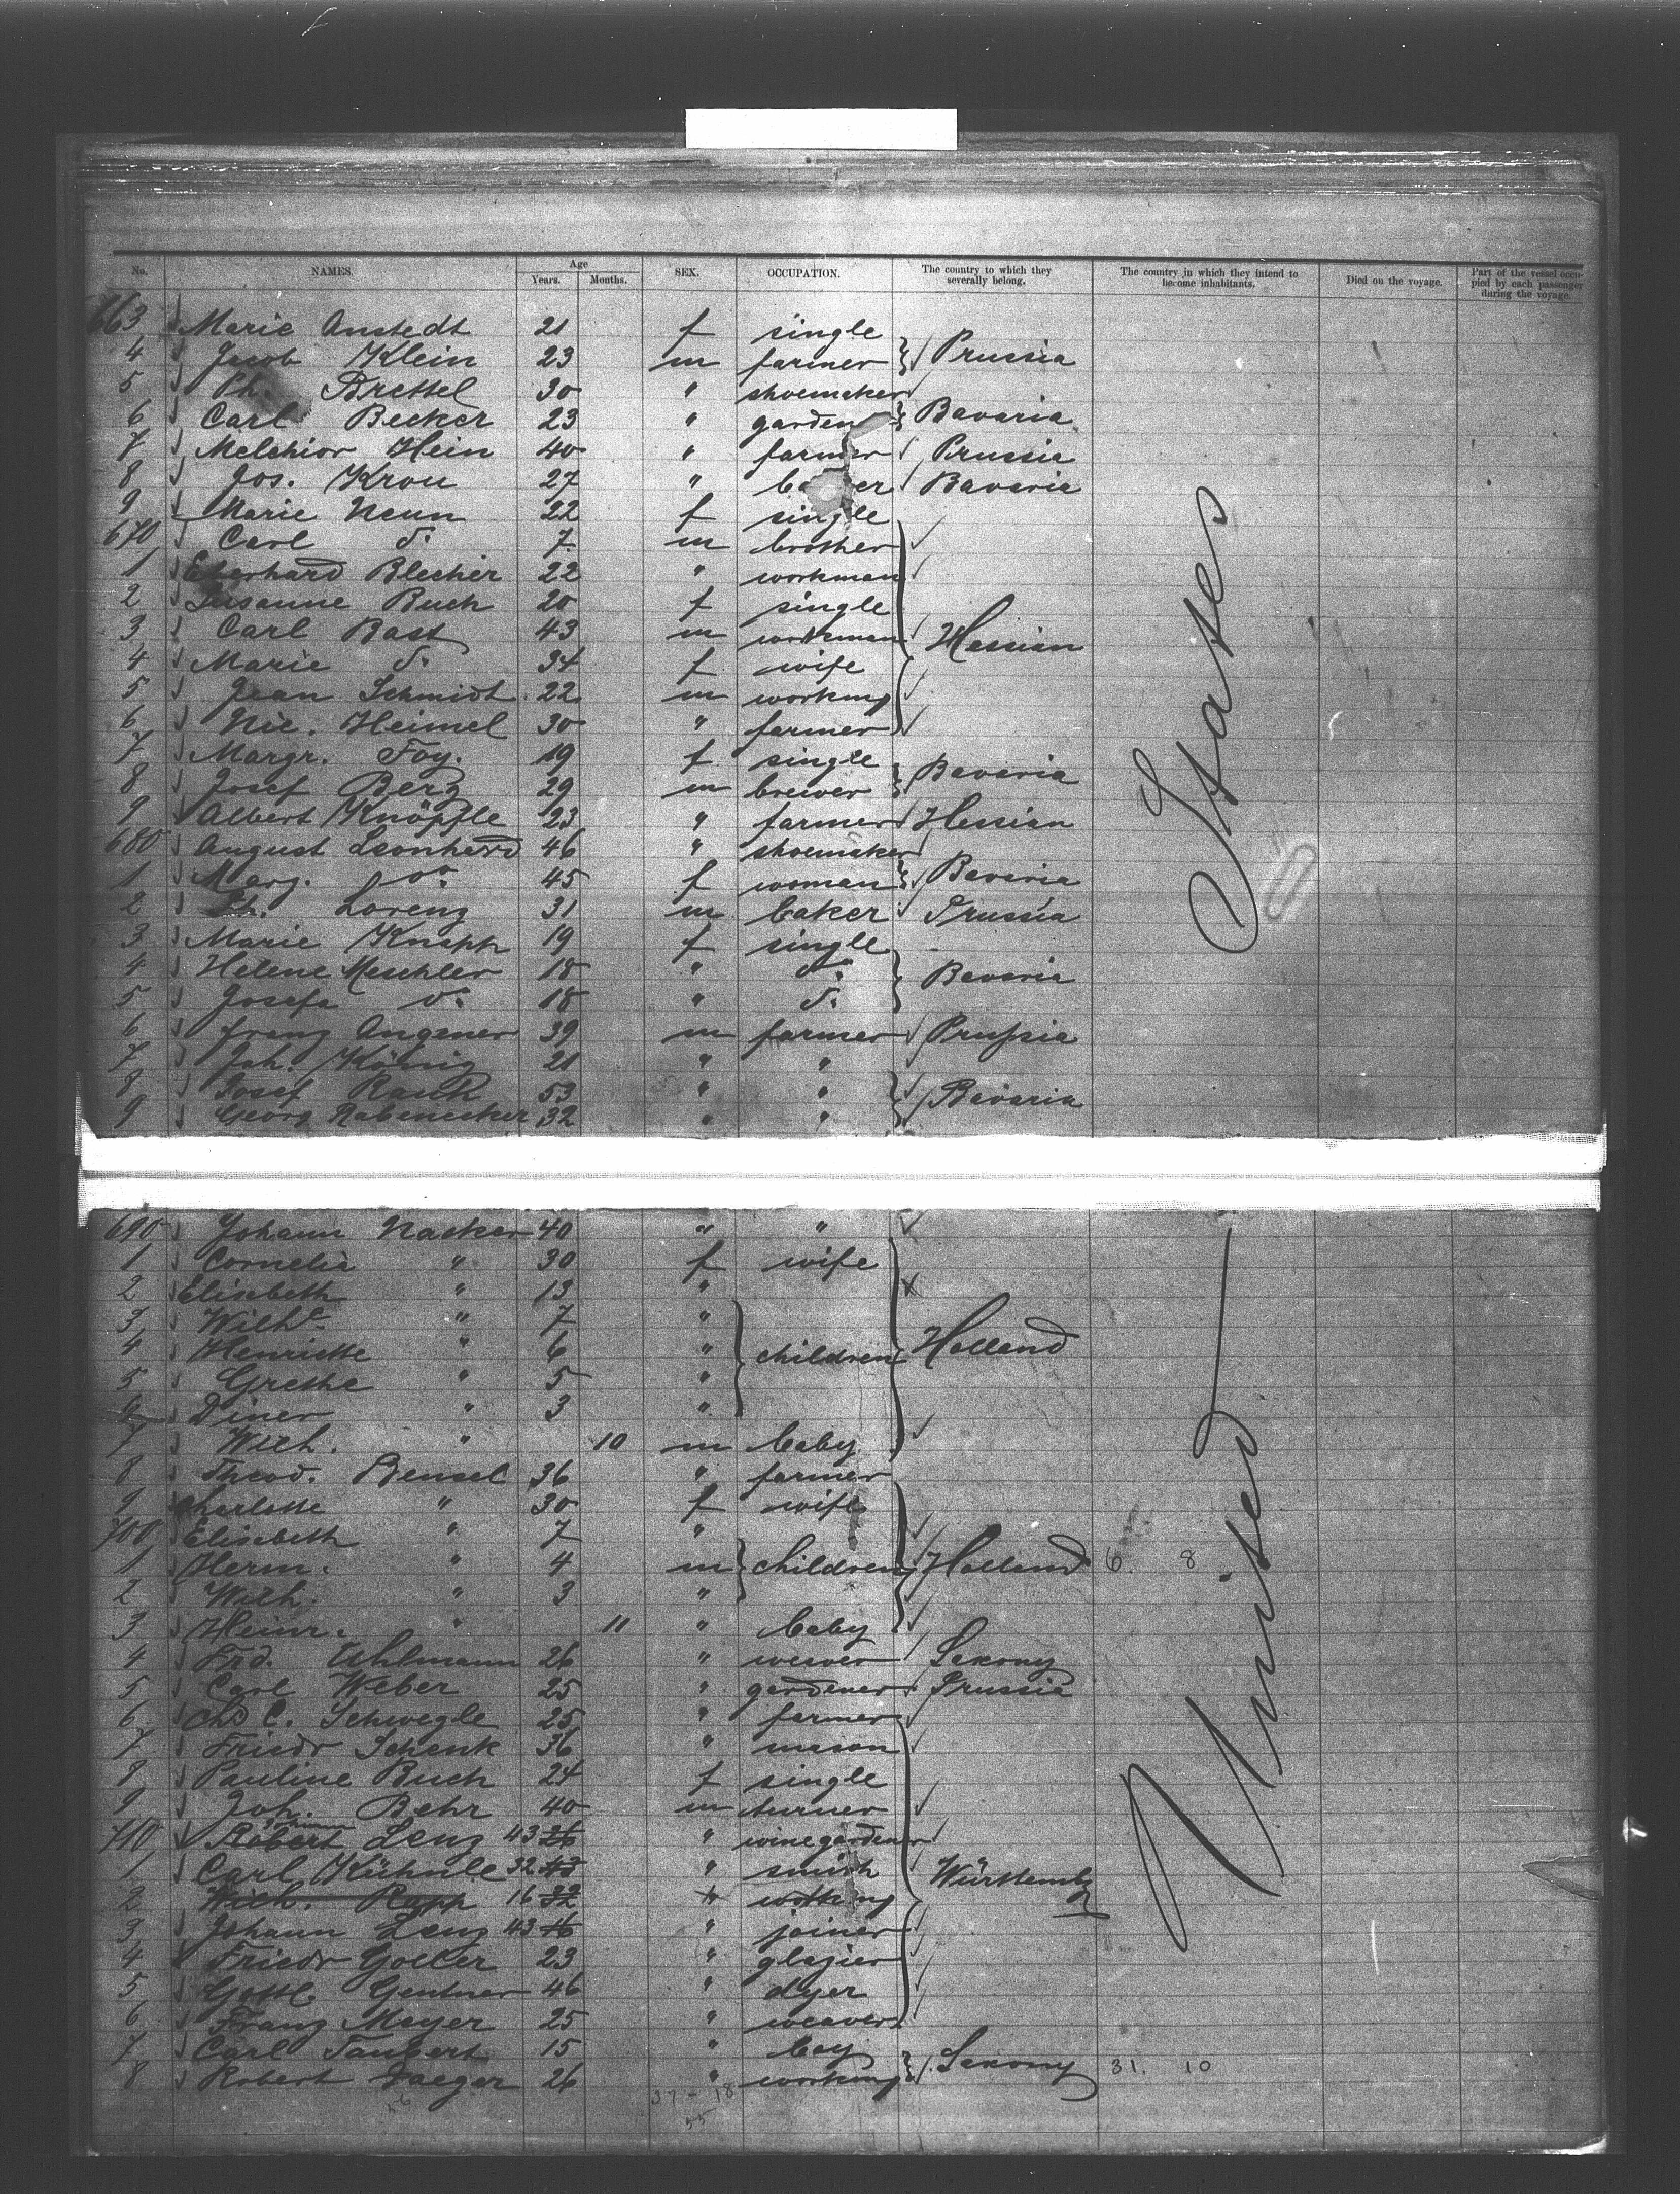 No. NAMES. Age Years. Months. SEX. OCCUPATION. The country to which they severally belong. The country in which they intend to become inhabitants. Died on the voyage. Part of the vessel occupied by each passenger during the voyage.
663 Marie Anstedt 21 f single
4 Jacob Klein 23 m farmer Prussia
5 Ph. Brettel 30 " shoemaker
6 Carl Becker 23 " garden Bavaria
7 Melchior Hein 40 " farmer Prussia
8 Jos. Kron 27 " ba er Bavaria
9 Marie Naun 22 f single
670 Carl do 7 m brother
1 Eberhard Blecher 22 " workman
2 Susanne Buch 20 f single
3 Carl Bast 43 m workman Hessian
4 Marie do 34 f wife
5 Jean Schmidt 22 m working
6 Nic. Heimel 30 " farmer
7 Margr. Foy. 19 f single Bavaria
8 Josef Berg 29 m brewer
9 Albert Knöpfle 23 " farmer Hessian
680 August Leonherd 46 " shoemaker
1 Marg. do 45 f woman Bavaria
2 Ph. Lorenz 31 m baker Prussia
3 Marie Knapp 19 f single
4 Helene Meschler 18 " do Bavaria
5 Josefa do 18 " do
6 Franz Angener 39 m farmer Prussia
7 Joh. König 21 " "
8 Josef Rauh 53 " " Bavaria
9 Georg Rabenecker 32 " "
690 Johann Nacker 40 " "
1 Cornelia " 30 f wife
2 Elisabeth " 13 "
3 Wilhe " 7 "
4 Henriette " 6 " children Holland
5 Grethe " 5 "
6 Diner " 3 "
7 Wilh. " 10 m baby
8 Theod. Bensel 36 " farmer
9 Charlotte " 30 f wife
700 Elisabeth " 7 "
1 Herm. " 4 m children Holland 6. 8
2 Wilh. " 3 "
3 Heinr. " 11 " baby
4 Frd. Uhlmann 26 " weaver Saxony
5 Carl Weber 25 " gardener Prussia
6 Chr C. Schwegle 25 " farmer
7 Friedr Schenk 36 " mason
8 Pauline Buch 24 f single
9 Joh. Behr 40 m turner
710 Robert Johann Lenz 43 26 " winegardener
1 Carl Kühnle 32 43 " smith Württembg
2 Wilh. Rapp 16 32 " working
3 Johann Lenz 43 16 " joiner
4 Friedr Goller 23 " glazier
5 Gottl. Gentner 46 " dyer
6 Franz Mayer 25 " weaver
7 Carl Taubert 15 " boy
8 Robert Jaeger 26 " working Saxony 31. 10
37 - 18
55
United States